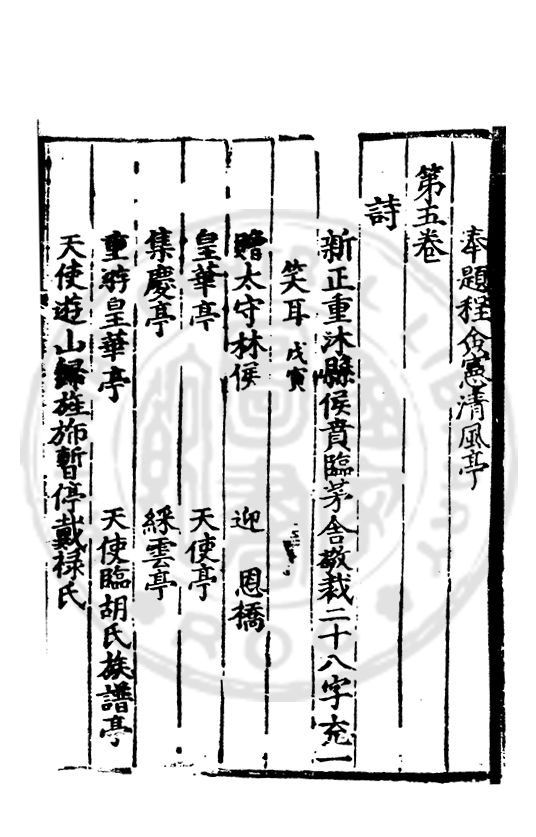 奉題程僉憲清風亭
第五卷
詩
新正重沐縣侯賁臨茅舍敬裁二十八字充一
笑耳戊寅
贈太守林侯 迎恩橋
皇華亭 天使亭
集慶亭 綵雲亭
重游皇華亭 天使臨胡氏族譜亭
天使遊山歸旌旆暫停戴禄氏